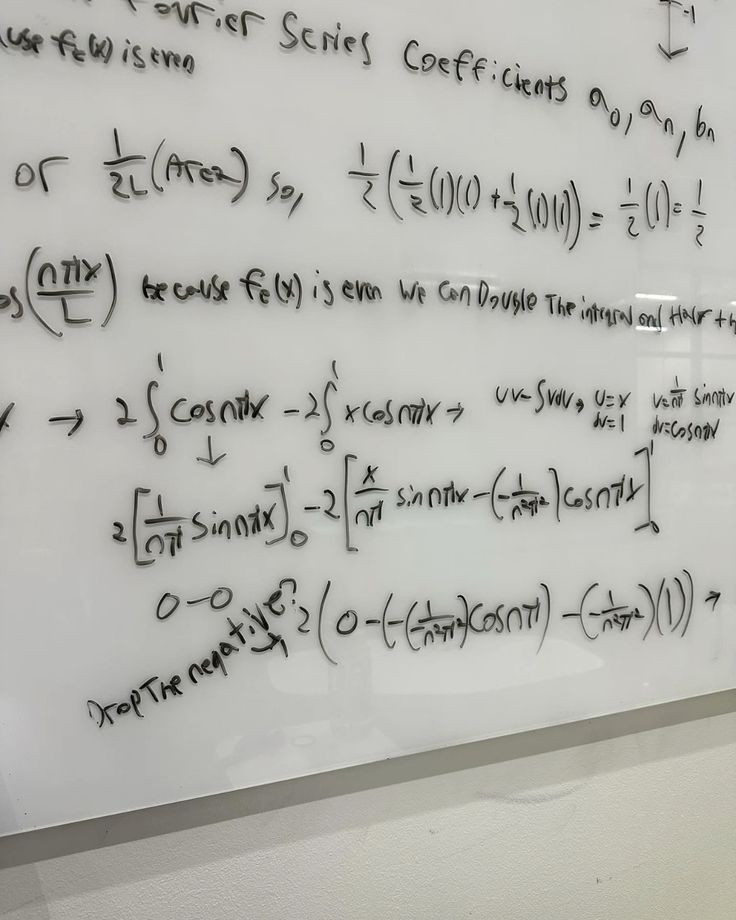 Fourier Series Coefficients a₀, aₙ, bₙ
-1
use fₑ(x) is even
or 1/2L (Area) so, 1/2 (1/2(1)(1) + 1/2(1)(1)) = 1/2(1) = 1/2
os(nπx/L) because fₑ(x) is even We Can Double The integral and Half th
x → 2∫₀¹ cosnπx - 2∫₀¹ xcosnπx → uv-∫vdu, u=x v=1/nπ sinnπx
du=1 dv=cosnπx
↓
2[1/nπ sinnπx]₀¹ - 2[x/nπ sinnπx - (-1/n²π²)cosnπx]₀¹
0-0 2(0-(-(1/-n²π²)cosnπ) - (-1/n²π²)(1)) →
Drop The negative? →